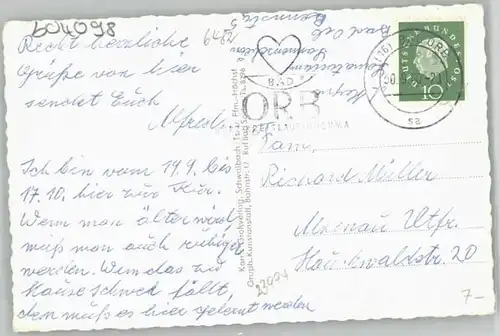 604098
Recht herzliche
Grüße von hier
sendet Euch
Alfred
Ich bin vom 19.9. bis
17.10. hier zur Kur.
Wenn man älter wird,
muß man auch ruhiger
werden. Wem das zu
Hause schwer fällt,
dem muß es hier gelernt werden
6482
Bad Orb
Sanatorium
BAD
ORB
DEUTSCHE BUNDESPOST
10
sa
Fam.
Richard Müller
Alzenau Ufr.
Hauckwaldstr. 20
22004
7.-